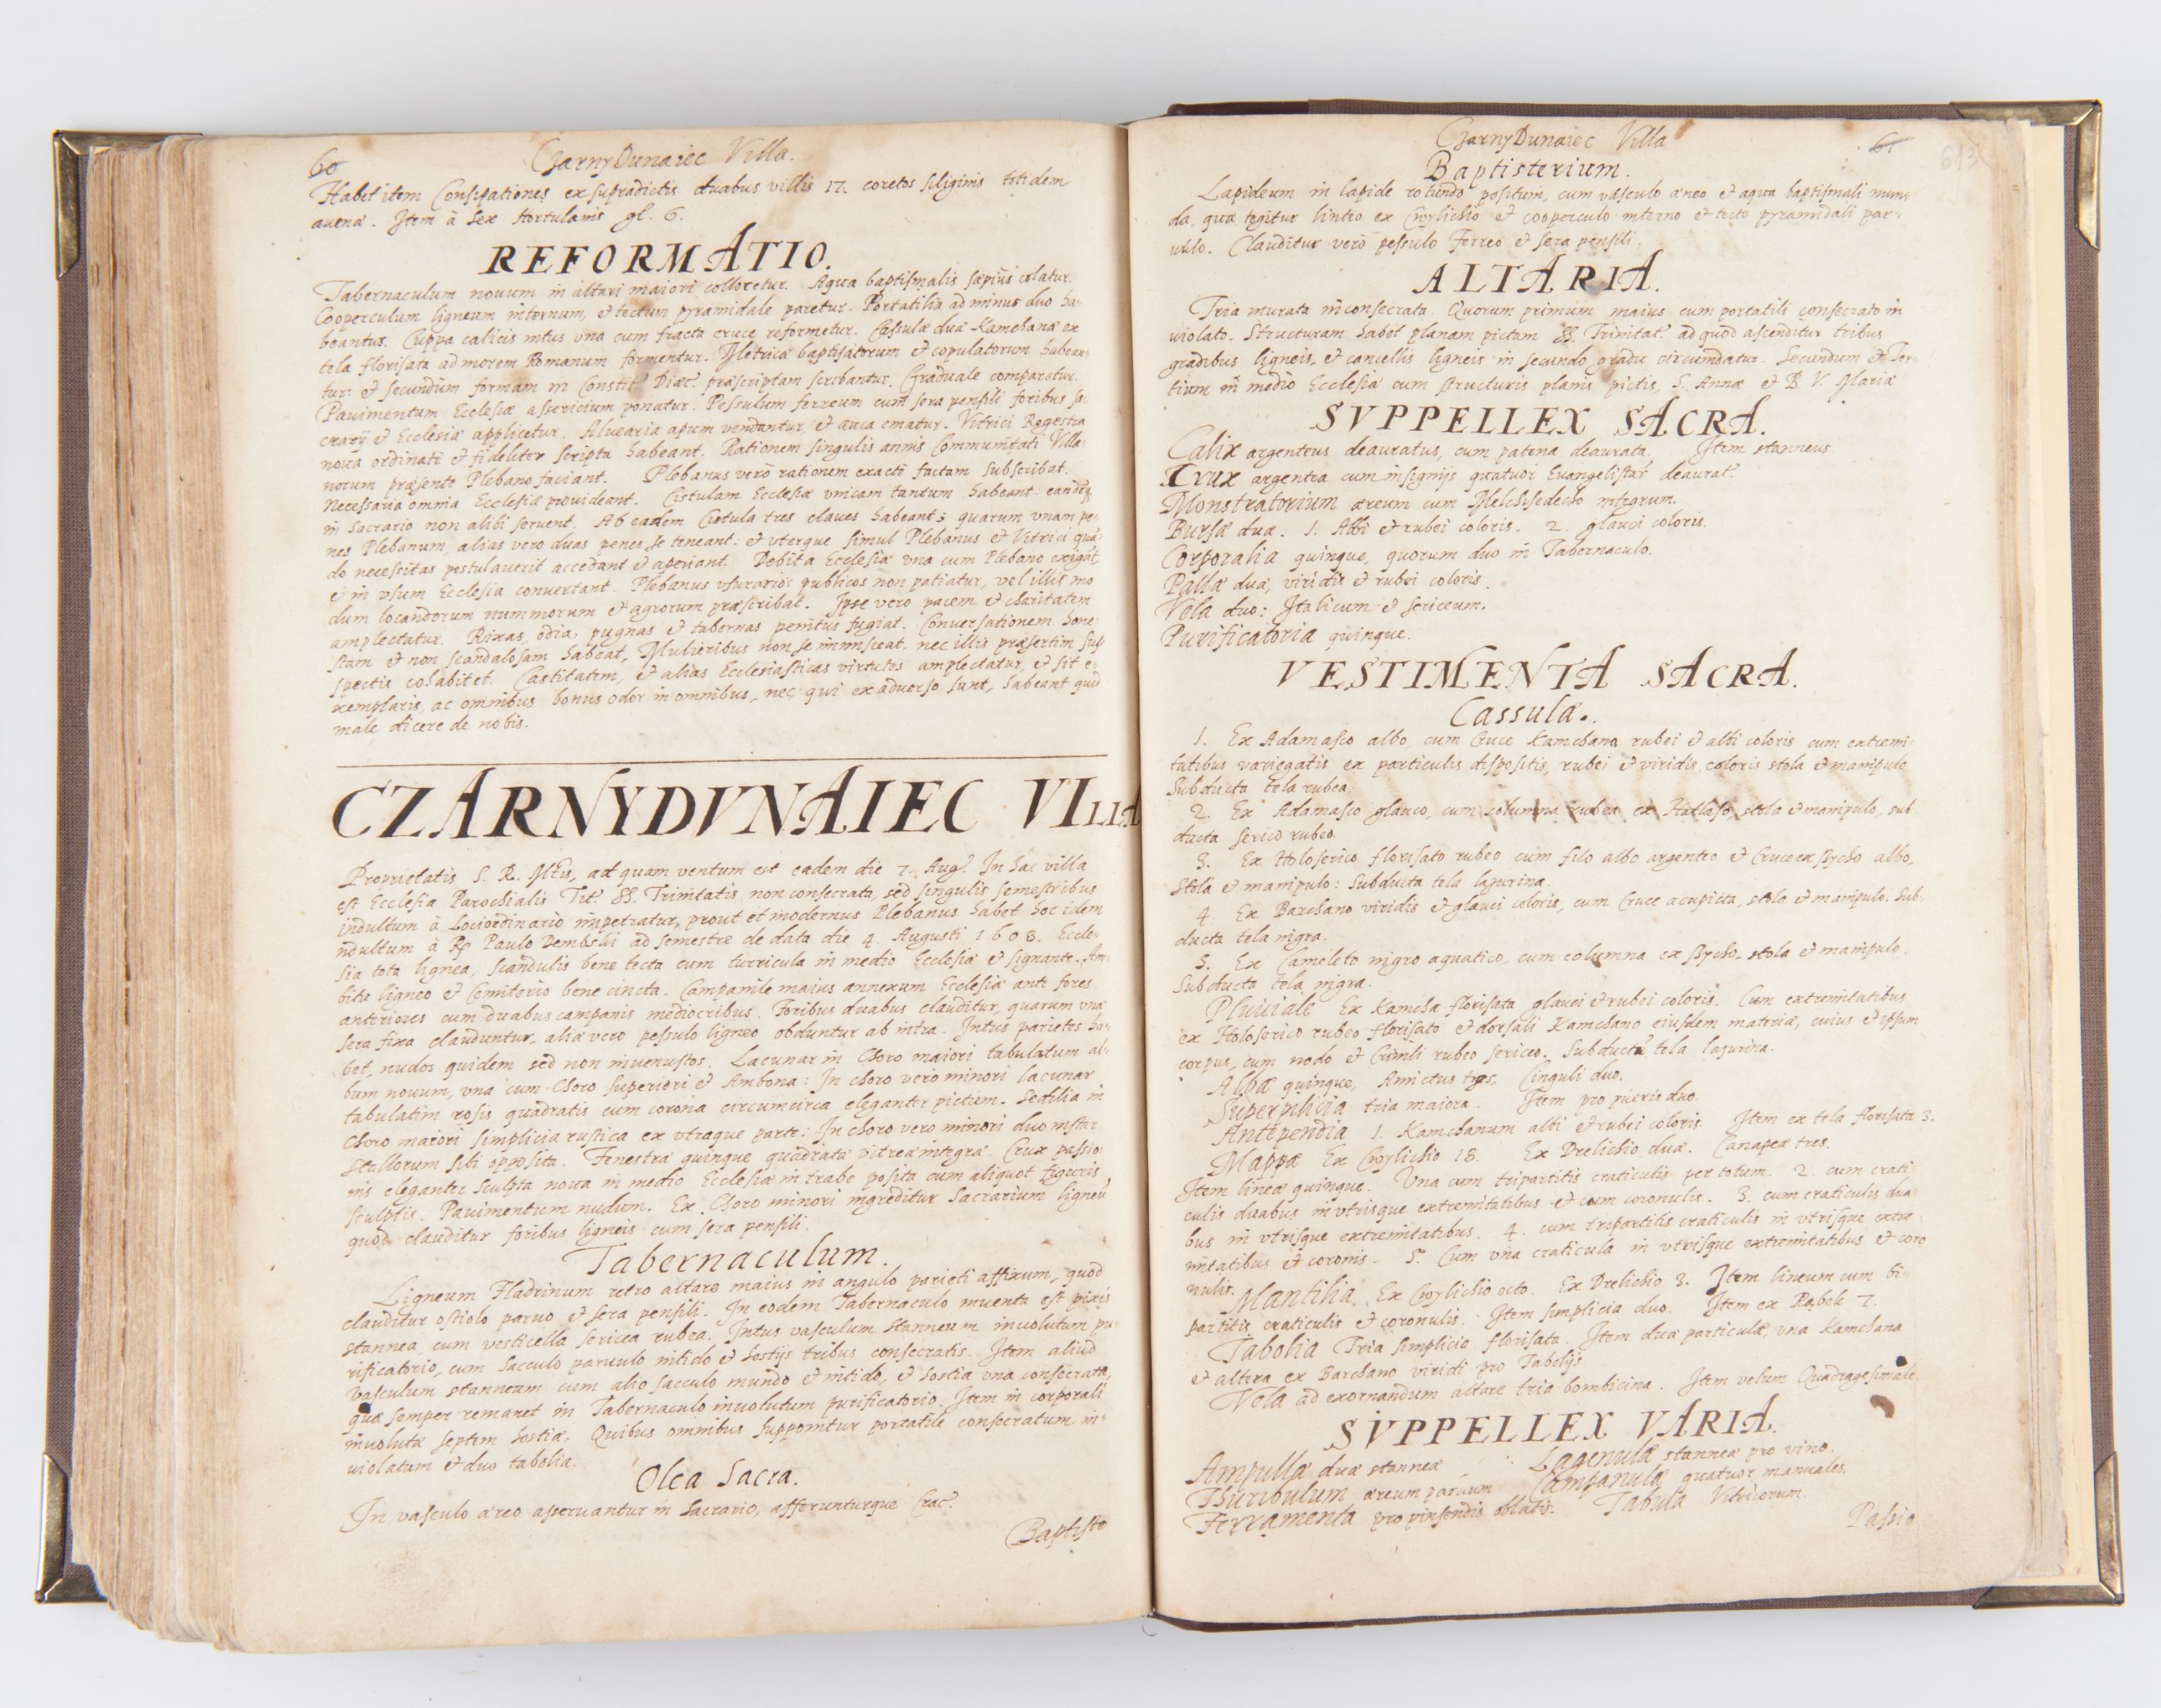 60
CzarnyDunaiec Villa.
Habet item Consipationes ex supradictis duabus villis 17 coretos siliginis totidem
auenæ. Item à sex Hortulanis gl. 6.
REFORMATIO.
Tabernaculum nouum in altari maiori collocetur. Aqua baptismalis sæpius colatur.
Cooperculum ligneum internum, & tectum pyramidale paretur. Portatilia ad minus duo ha-
beantur. Cuppa calicis intus vna cum fracta cruce reformetur. Cassulæ duæ Kamchanæ ex
tela florisata ad morem Romanum formentur. Metrica baptisatorum & copulatorum habean-
tur: & secundum formam in Constit. Diæc. præscriptam scribantur. Graduale comparetur.
Pauimentum Ecclesiæ assericium ponatur. Pessulum ferreum cum sera pensili foribus sa-
crarij & Ecclesiæ applicetur. Aluearia apum vendantur, & ematur. Vitrici Regestra
noua ordinati & fideliter scripta habeant. Rationem singulis annis Communitati Villa-
norum præsente Plebano faciant. Plebanus verò rationum exactè factam subscribat.
Necessaria omnia Ecclesiæ prouideant. Cistulam Ecclesiæ vnicam tantum habeant: eandemq;
in Sacrario non alibi seruent. Ab eadem Cistula tres claues habeant; quarum vnam pe-
nes Plebanum, alias vero duas penes se teneant: & vterque simul Plebanus & Vitrici quā-
do necessitas postulauerit accedant & aperiant. Debita Ecclesiæ vna cum Plebano exigāt,
& in vsum Ecclesiæ conuertant. Plebanus vsurarios publicos non patiatur, vel illis mo
dum locandorum nummorum & agrorum præscribat. Ipse vero pacem & charitatem
amplectatur. Rixas, odia, pugnas & tabernas penitus fugiat. Conuersationem hone
stam & non scandalosam habeat, Mulieribus non se immisceat, nec illis præsertim sus
spectis cohabitet. Castitatem, & alias Ecclesiasticas virtutes amplectatur, & sit e-
xemplaris, ac omnibus bonus odor in omnibus, nec qui ex aduerso sunt, habeant quid
male dicere de nobis.
CZARNYDVNAIEC VILLA
Proprietatis S. R. Mtis, ad quam ventum est eadem die 7. Aug. In hac villa
est Ecclesia Parochialis Tit. SS. Trinitatis non consecrata, sed singulis semestribus
indultum à Lociordinario impetratur, prout et modernus Plebanus habet hoc idem
ndultum à R Paulo Dembski ad semestre de data die 4. Augusti 1608. Eccle-
sia tota lignea, scandulis bene tecta cum turricula in medio Ecclesiæ & signante. Am-
bitu ligneo & Cemiterio bene cincta. Campanile maius annexum Ecclesiæ ante fores
anteriores cum duabus campanis mediocribus. Foribus duabus clauditur, quarum vnæ
sera fixa clauduntur, aliæ vero pessulo ligneo obduntur ab intra. Intus parietes ha-
bet, nudos quidem sed non inuenustos. Lacunar in Choro maiori tabulatum al-
bum nouum, vna cum Choro superiori & Ambona: In choro verò minori lacunar
tabulatim rosis quadratis cum corona circumcirca eleganter pictum. Sedilia in
Choro maiori simplicia rustica ex vtraque parte: In choro vero minori duo instar
Stallorum sibi opposita. Fenestræ quinque quadratæ vitreæ integræ. Crux passio-
nis eleganter sculpta noua in medio Ecclesiæ in trabe posita cum aliquot figuris
sculptis. Pauimentum nudum. Ex Choro minori ingreditur Sacrarium ligneū
quod clauditur foribus ligneis cum sera pensili.
Tabernaculum.
Ligneum Fladrinum retro altare maius in angulo parieti affixum, quod
clauditur ostiolo paruo & sera pensili. In eodem Tabernaculo inuenta est pixis
stannea, cum vesticella sericea rubea. Intus vasculum stanneum inuolutum pu-
rificatorio, cum sacculo paruulo nitido & hostijs tribus consecratis. Item aliud
vasculum stanneum cum alio sacculo mundo & nitido, & hostia vna consecrata,
quæ semper remanet in Tabernaculo inuolutum purificatorio. Item in corporali
inuolutæ septem hostiæ. Quibus omnibus supponitur portatile consecratum in-
uiolatum & duo tabolia.
Olea Sacra.
In vasculo æreo asseruantur in Sacrario, afferunturque Crac.
Baptiste
CzarnyDunaiec Villa
61
613
Baptisterium.
Lapideum in lapide rotundo positum, cum vasculo æneo & aqua baptismali mun-
da, quæ tegitur linteo ex Cwylichio & cooperculo interno & tecto pyramidali par-
uulo. Clauditur verò pessulo ferreo & sera pensili.
ALTARIA.
Tria murata inconsecrata. Quorum primum maius cum portatili consecrato in
uiolato. Structuram habet planam pictam SS. Trinitat. ad quod ascenditur tribus
gradibus ligneis, & cancellis ligneis in secundo gradu circumdatur. Secundum & Ter-
tium in medio Ecclesiæ cum structuris planis pictis, S. Annæ & B. V. Mariæ
SVPPELLEX SACRA.
Calix argenteus deauratus, cum patena deaurata. Item stanneus
Crux argentea cum insignijs quatuor Euangelistar. deaurat.
Monstratorium æreum cum Melchisedecho integrum.
Bursæ duæ. 1. Albi & rubei coloris. 2. glauci coloris.
Corporalia quinque, quorum duo in Tabernaculo.
Pallæ duæ, viridis & rubei coloris.
Vela duo: Italicum & sericeum.
Purificatoria quinque.
VESTIMENTA SACRA.
Cassulæ.
1. Ex Adamasco albo, cum Cruce Kamchana rubei & albi coloris cum extremi-
tatibus variegatis ex particulis dispositis, rubei & viridis coloris stola & manipulo
Subducta tela rubea.
2. Ex Adamasco glauco, cum columna rubea ex Hatlaso, stola & manipulo, sub
ducta serico rubeo.
3. Ex Holoserico florisato rubeo cum filo albo argenteo & Cruce ex albo,
Stola & manipulo: Subducta tela lazurina.
4. Ex Barchano viridis & glauci coloris, cum Cruce acupicta, stola & manipulo. Sub-
ducta tela nigra.
5. Ex Cameleto nigro aquatico, cum columna ex stola & manipulo.
Subducta tela nigra.
Pluuiale Ex Kamcha florisata glauci & rubei coloris. Cum extremitatibus
ex Holoserico rubeo florisato & dorsali Kamchano eiusdem materiæ, cuius & ipsum
corpus, cum nodo & Crimli rubeo sericeo. Subducta tela lazurina.
Albæ quinque, Amictus tres, Cinguli duo.
Superpilicia tria maiora. Item pro pueris duo.
Antependia 1. Kamchanum albi & rubei coloris. Item ex tela florisata 3.
Mappæ Ex Cwylichio 18. Ex Drelichio duæ. Canapeæ tres.
Item lineæ quinque. Vna cum tripartitis craticulis per totum. 2. cum crati-
culis duabus in vtrisque extremitatibus & cum coronulis. 3. cum craticulis dua-
bus in vtrisque extremitatibus. 4. cum tripartitis craticulis in vtrisque extre-
mitatibus & coronis. 5. Cum vna craticula in vtrisque extremitatibus & coro
nulis.
Mantilia. Ex Cwylichio octo. Ex Drelichio 3. Item lineum cum bi-
partitis craticulis & coronulis. Item simplicia duo. Item ex Rabek 7.
Tabolia Tria simplicia florisata. Item duæ particulæ, vna Kamchana
& altera ex Barchano viridi pro Tabolijs.
Vela ad exornandum altare tria bombicina. Item velum Quadragesimale.
SVPPELLEX VARIA.
Ampullæ duæ stanneæ
Lagenulæ stanneæ pro vino.
Thuribulum æreum paruum
Campanulæ quatuor manuales.
Ferramenta pro pinsendis oblatis.
Tabula Vitricorum.
Passio